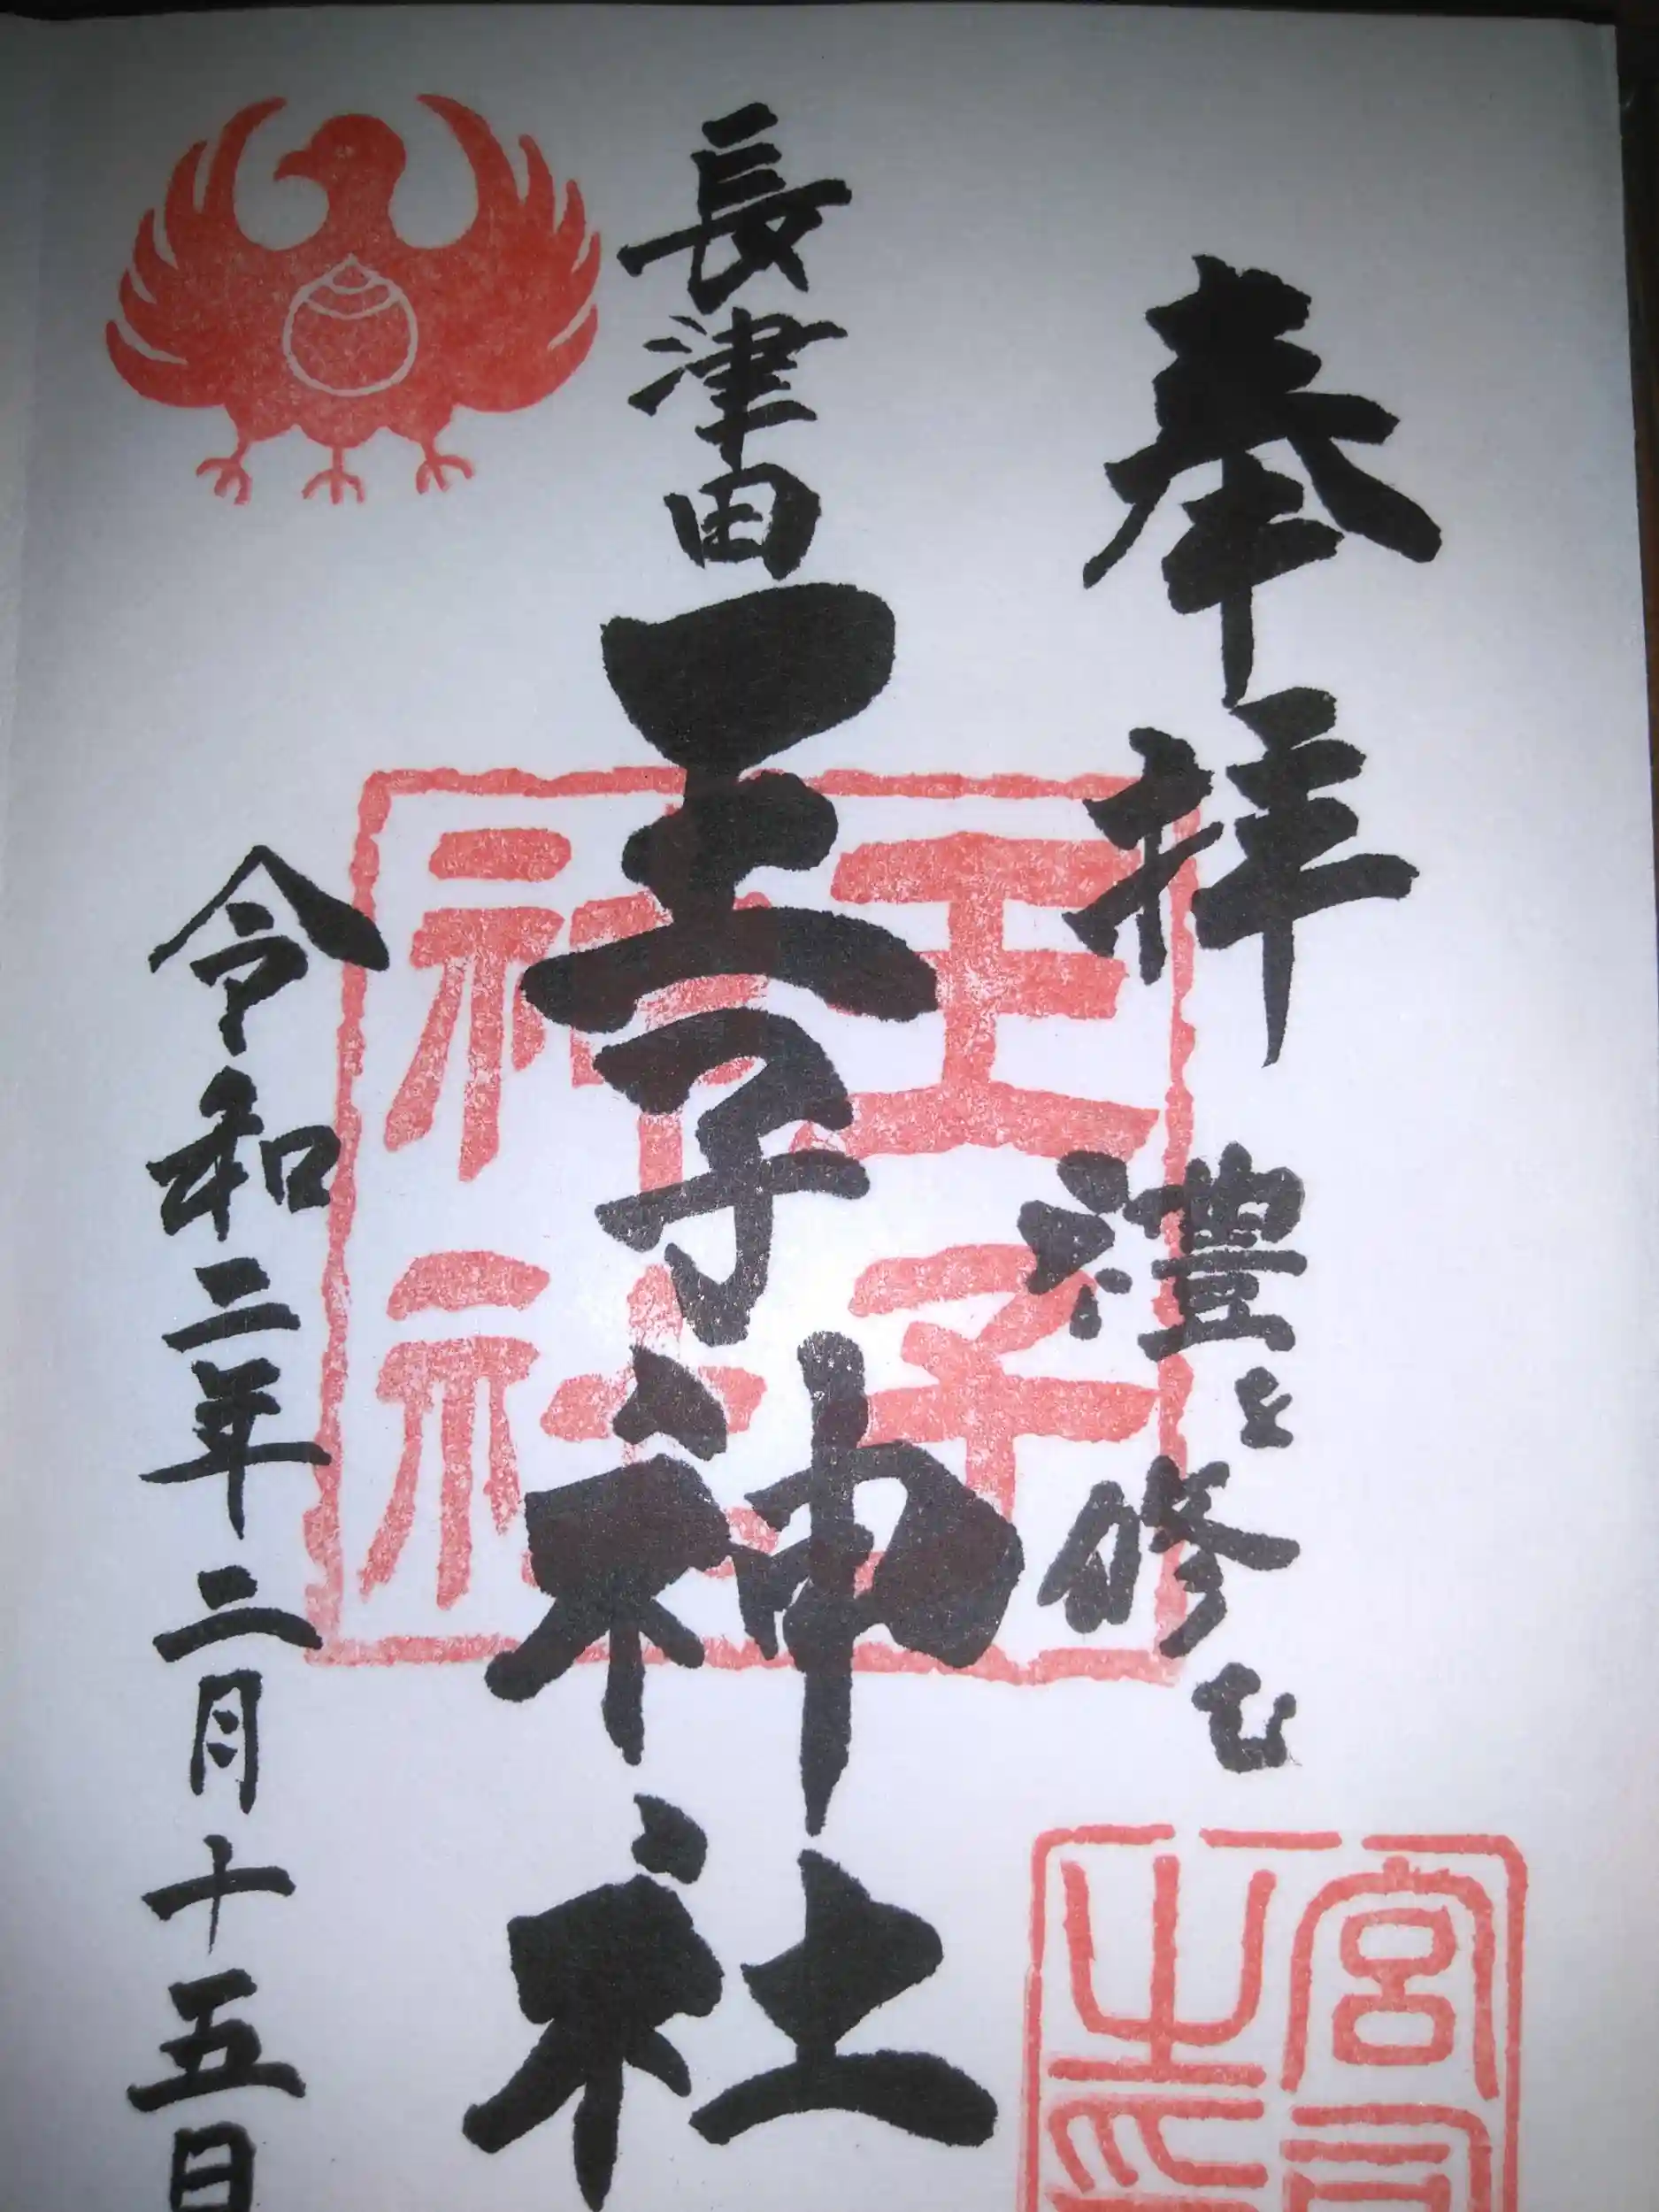 奉拝 禮を修む
長津田王子神社
令和二年二月十五日
王子
神社
宮司
之印